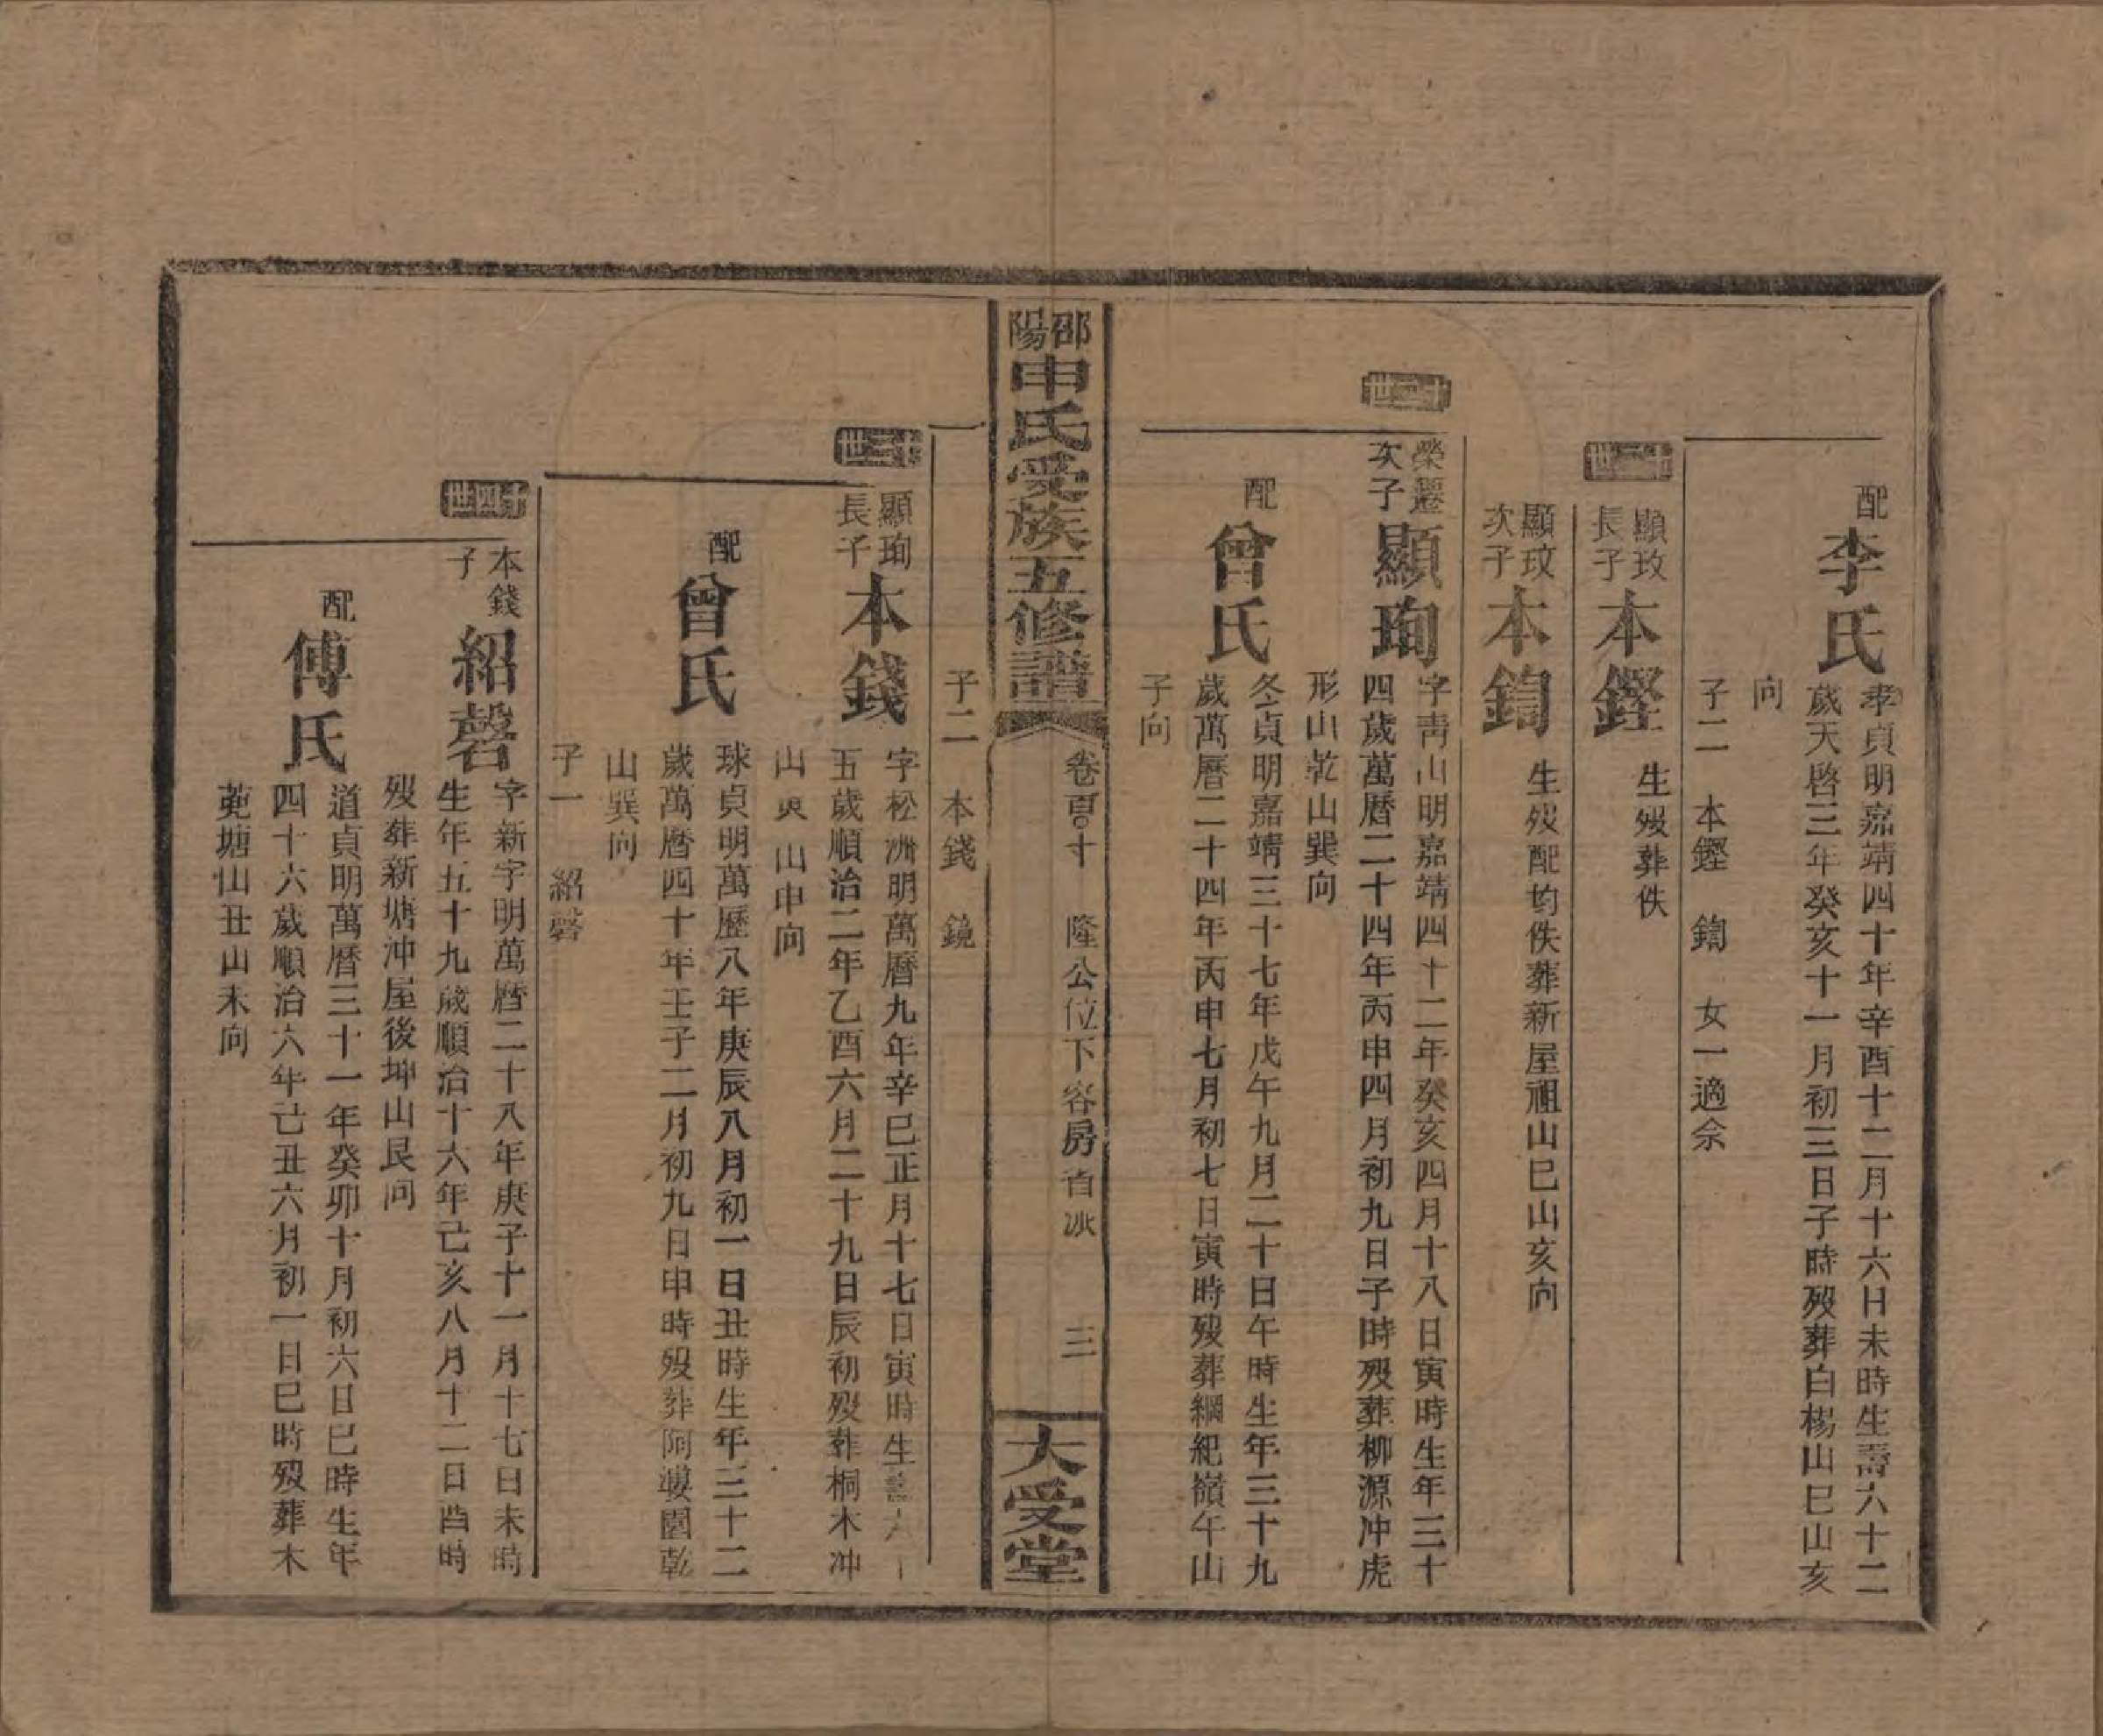 配
李氏
孝貞明嘉靖四十年辛酉十二月十六日未時生壽六十二
歲天啓三年癸亥十一月初三日子時歿葬白楊山巳山亥
向
子二 本鏗 鎬 女一適佘
十二世
顯玫
長子
本鏗
生歿葬佚
顯玟
次子
本鎬
生歿配均佚葬新屋祖山巳山亥向
十一世
榮遷
次子
顯珣
字青山明嘉靖四十二年癸亥四月十八日寅時生年三十
四歲萬曆二十四年丙申四月初九日子時歿葬柳源冲虎
形山乾山巽向
配
曾氏
冬貞明嘉靖三十七年戊午九月二十日午時生年三十九
歲萬曆二十四年丙申七月初七日寅時歿葬綱紀嶺午山
子向
邵陽
申氏受族五修譜
卷百十 隆公位下容房首派 三
大受堂
子二 本錢 鏡
十三世
顯珣
長子
本錢
字松洲明萬曆九年辛巳正月十七日寅時生壽六十
五歲順治二年乙酉六月二十九日辰初歿葬桐木冲
山 山申向
配
曾氏
球貞明萬歷八年庚辰八月初一日丑時生年三十二
歲萬曆四十年壬子二月初九日申時歿葬阿婆園乾
山巽向
子一 紹磬
十四世
本錢
子
紹磬
字新字明萬曆二十八年庚子十一月十七日未時
生年五十九歲順治十六年己亥八月十二日酉時
歿葬新塘冲屋後坤山艮向
配
傅氏
道貞明萬曆三十一年癸卯十月初六日巳時生年
四十六歲順治六年己丑六月初一日巳時歿葬木
蔸塘山丑山未向